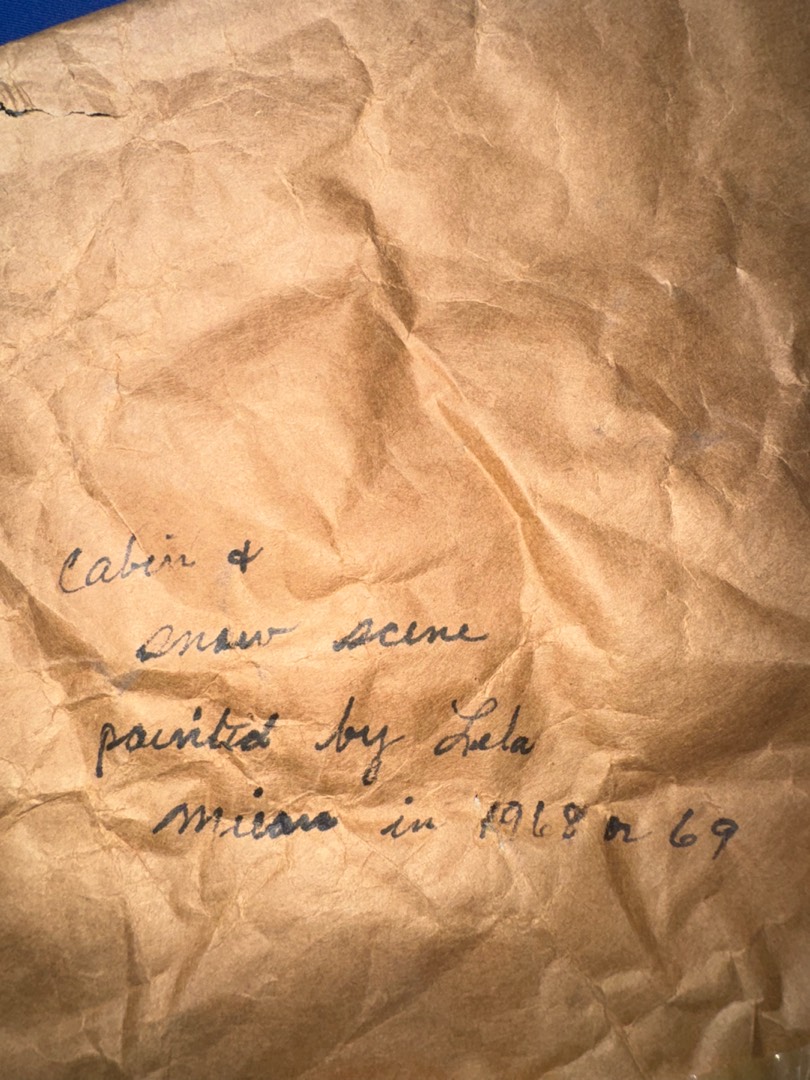 Cabin &
snow scene
painted by Lela
in 1968 or 69